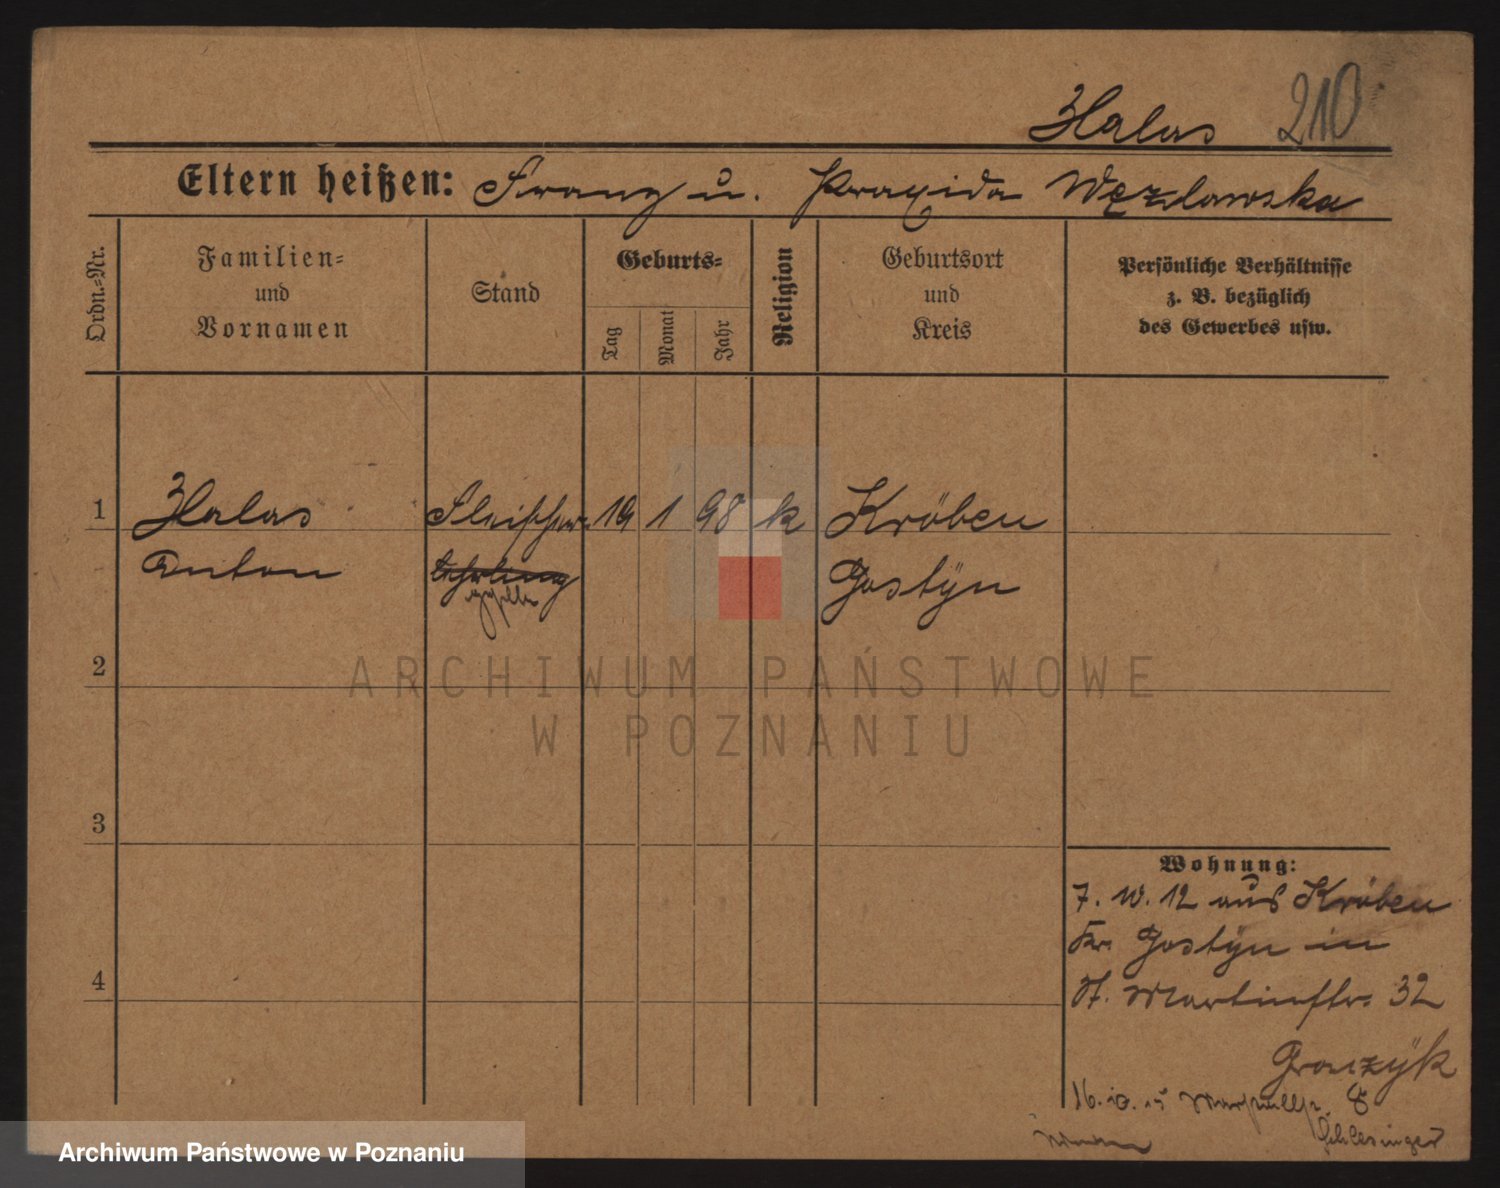 Halas 210
Eltern heißen: Franz u. Praxida Węzlawska
Ordn.-Nr.
Familien-
und
Vornamen
Stand
Geburts-
Tag
Monat
Jahr
Religion
Geburtsort
und
Kreis
Persönliche Verhältnisse
z. B. bezüglich
des Gewerbes usw.
1 Halas Fleischer- 19 1 98 k Kröben
Anton lehrling Gostÿn
geselle
2
ARCHIWUM PAŃSTWOWE
W POZNANIU
3
Wohnung:
7. 10. 12 aus Kröben
Kr. Gostÿn in
4
St. Martinstr. 32
Graczÿk
16. 10. 15 8
Schlesinger
Archiwum Państwowe w Poznaniu